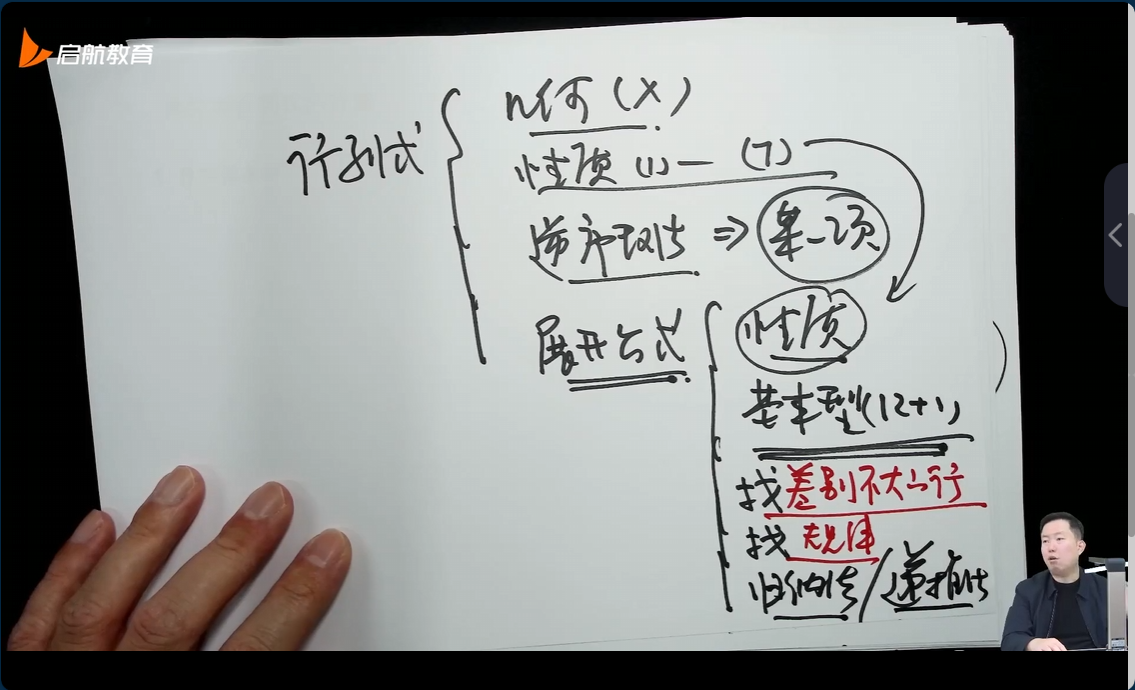 启航教育
行列式
n何(X)
性质(1)—(7)
逆序数法⇒某一项
展开公式
性质
基本型(12+1)
找差别不大的行
找规律
归纳法/递推法